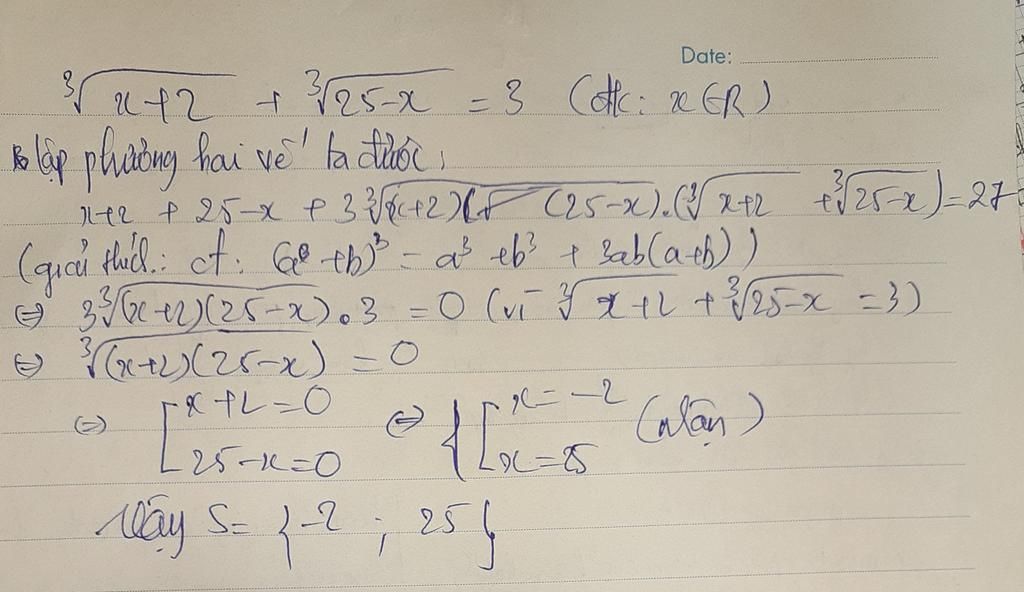 Date:
∛(x+2) + ∛(25-x) = 3 (đk: x∈R)
lập phương hai vế ta được:
x+2 + 25-x + 3∛((x+2)(25-x)).(∛(x+2) + ∛(25-x)) = 27
(giải thích: ct: (a+b)³ = a³ + b³ + 3ab(a+b))
⇔ 3∛((x+2)(25-x)) . 3 = 0 (vì ∛(x+2) + ∛(25-x) = 3)
⇔ ∛((x+2)(25-x)) = 0
⇔ [ x+2=0 ⇔ { [ x = -2 (nhận)
25-x=0 x=25
Vậy S= {-2 ; 25}